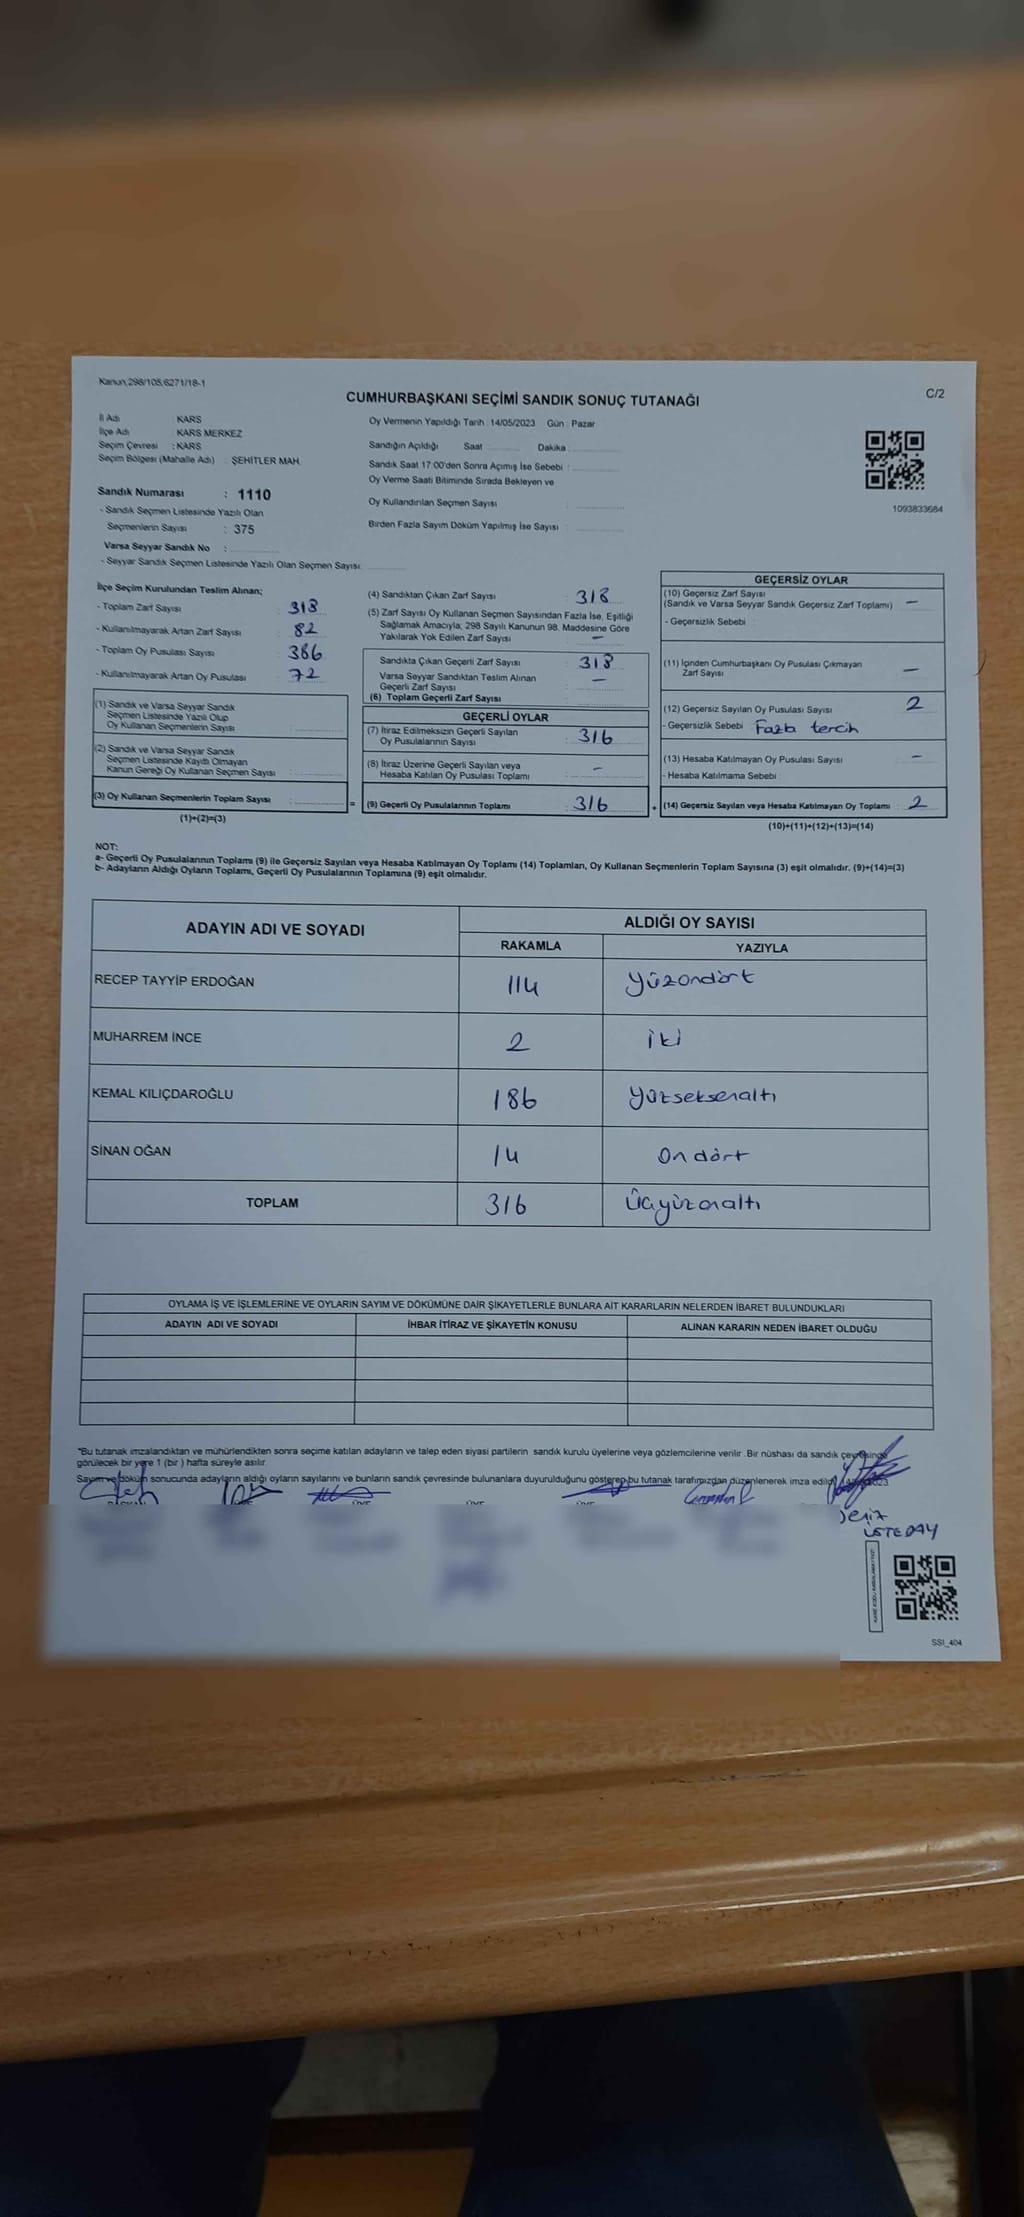 Kanun,298/105,6271/18-1
C/2
CUMHURBAŞKANI SEÇİMİ SANDIK SONUÇ TUTANAĞI
İl Adı : KARS
İlçe Adı : KARS MERKEZ
Seçim Çevresi : KARS
Seçim Bölgesi (Mahalle Adı) : ŞEHİTLER MAH.
Sandık Numarası : 1110
- Sandık Seçmen Listesinde Yazılı Olan
Seçmenlerin Sayısı : 375
Varsa Seyyar Sandık No :
- Seyyar Sandık Seçmen Listesinde Yazılı Olan Seçmen Sayısı:
Oy Vermenin Yapıldığı Tarih : 14/05/2023 Gün : Pazar
Sandığın Açıldığı Saat Dakika :
Sandık Saat 17:00'den Sonra Açımış İse Sebebi :
Oy Verme Saati Bitiminde Sırada Bekleyen ve
Oy Kullandırılan Seçmen Sayısı :
Birden Fazla Sayım Döküm Yapılmış İse Sayısı :
1093833684
İlçe Seçim Kurulundan Teslim Alınan;
- Toplam Zarf Sayısı : 318
- Kullanılmayarak Artan Zarf Sayısı : 82
- Toplam Oy Pusulası Sayısı : 386
- Kullanılmayarak Artan Oy Pusulası : 72
(1) Sandık ve Varsa Seyyar Sandık
Seçmen Listesinde Yazılı Olup
Oy Kullanan Seçmenlerin Sayısı :
(2) Sandık ve Varsa Seyyar Sandık
Seçmen Listesinde Kayıtlı Olmayan
Kanun Gereği Oy Kullanan Seçmen Sayısı :
(3) Oy Kullanan Seçmenlerin Toplam Sayısı :
(1)+(2)=(3)
(4) Sandıktan Çıkan Zarf Sayısı : 318
(5) Zarf Sayısı Oy Kullanan Seçmen Sayısından Fazla İse, Eşitliği
Sağlamak Amacıyla, 298 Sayılı Kanunun 98. Maddesine Göre
Yakılarak Yok Edilen Zarf Sayısı : —
Sandıkta Çıkan Geçerli Zarf Sayısı : 318
Varsa Seyyar Sandıktan Teslim Alınan —
Geçerli Zarf Sayısı :
(6) Toplam Geçerli Zarf Sayısı
GEÇERLİ OYLAR
(7) İtiraz Edilmeksizin Geçerli Sayılan
Oy Pusulalarının Sayısı : 316
(8) İtiraz Üzerine Geçerli Sayılan veya
Hesaba Katılan Oy Pusulası Toplamı : —
= (9) Geçerli Oy Pusulalarının Toplamı : 316
GEÇERSİZ OYLAR
(10) Geçersiz Zarf Sayısı
(Sandık ve Varsa Seyyar Sandık Geçersiz Zarf Toplamı) : —
- Geçersizlik Sebebi :
(11) İçinden Cumhurbaşkanı Oy Pusulası Çıkmayan
Zarf Sayısı : —
(12) Geçersiz Sayılan Oy Pusulası Sayısı : 2
- Geçersizlik Sebebi : Fazla tercih
(13) Hesaba Katılmayan Oy Pusulası Sayısı : —
- Hesaba Katılmama Sebebi :
+ (14) Geçersiz Sayılan veya Hesaba Katılmayan Oy Toplamı : 2
(10)+(11)+(12)+(13)=(14)
NOT:
a- Geçerli Oy Pusulalarının Toplamı (9) ile Geçersiz Sayılan veya Hesaba Katılmayan Oy Toplamı (14) Toplamları, Oy Kullanan Seçmenlerin Toplam Sayısına (3) eşit olmalıdır. (9)+(14)=(3)
b- Adayların Aldığı Oyların Toplamı, Geçerli Oy Pusulalarının Toplamına (9) eşit olmalıdır.
ADAYIN ADI VE SOYADI ALDIĞI OY SAYISI
RAKAMLA YAZIYLA
RECEP TAYYİP ERDOĞAN 114 Yüzondört
MUHARREM İNCE 2 iki
KEMAL KILIÇDAROĞLU 186 Yüzseksenaltı
SİNAN OĞAN 14 Ondört
TOPLAM 316 Üçyüzonaltı
OYLAMA İŞ VE İŞLEMLERİNE VE OYLARIN SAYIM VE DÖKÜMÜNE DAİR ŞİKAYETLERLE BUNLARA AİT KARARLARIN NELERDEN İBARET BULUNDUKLARI
ADAYIN ADI VE SOYADI İHBAR İTİRAZ VE ŞİKAYETİN KONUSU ALINAN KARARIN NEDEN İBARET OLDUĞU
*Bu tutanak imzalandıktan ve mühürlendikten sonra seçime katılan adayların ve talep eden siyasi partilerin sandık kurulu üyelerine veya gözlemcilerine verilir. Bir nüshası da sandık çevresinde
görülecek bir yere 1 (bir ) hafta süreyle asılır.
Sayım ve döküm sonucunda adayların aldığı oyların sayılarını ve bunların sandık çevresinde bulunanlara duyurulduğunu gösterep bu tutanak tarafımızdan düzenlenerek imza edildi.
SSI_404